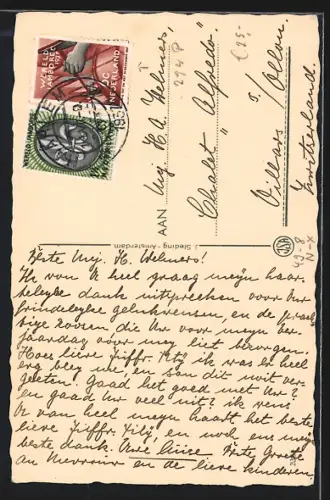 WERELD
JAMBOREE
1937
NEDERLAND
1937
AAN Mej. H. Welmers,
Chalet "Alfreda"
Villars s/Ollon.
Zwitserland
294 P
J. Sleding - Amsterdam
JOSPA
49-8
N-X
Beste Mej. H. Welmers!
Ik van U heel graag meyn haar-
telyke dank uitspreken voor Uw
vrindelyke gelukwensen, en de prach-
tige roosen die Uw voor meyn ver-
jaardag voor mey liet bezorgen.
Hoes lieve Juffr. Tity ik was er heel
erg bley me, en son dit noit ver-
geeten! Gaad het goed met Uw?
en gaad Uw veel uit? ik vens
U van heel meyn haart, het beste
lieve Juffr. Tity, en noch ens meyn
beste dank. Uwe Luise. Feele Groete
An Mevrouw en de lieve kinderen.